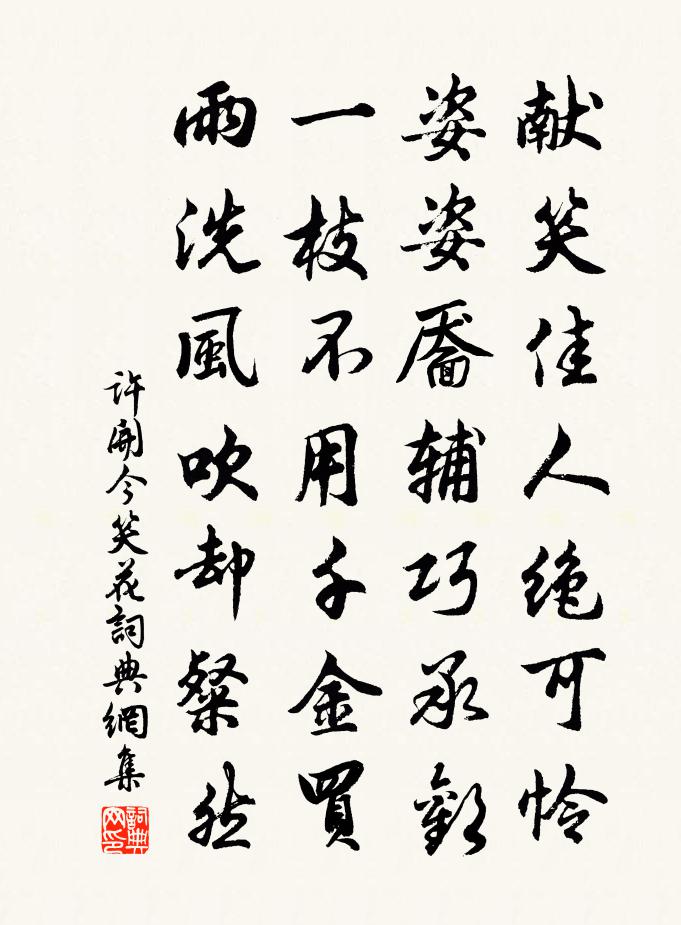 献笑佳人绝可怜
姿姿靥辅巧承歡
一枝不用千金買
雨洗風吹却粲然
許開今笑花詞典網集
詞典网印